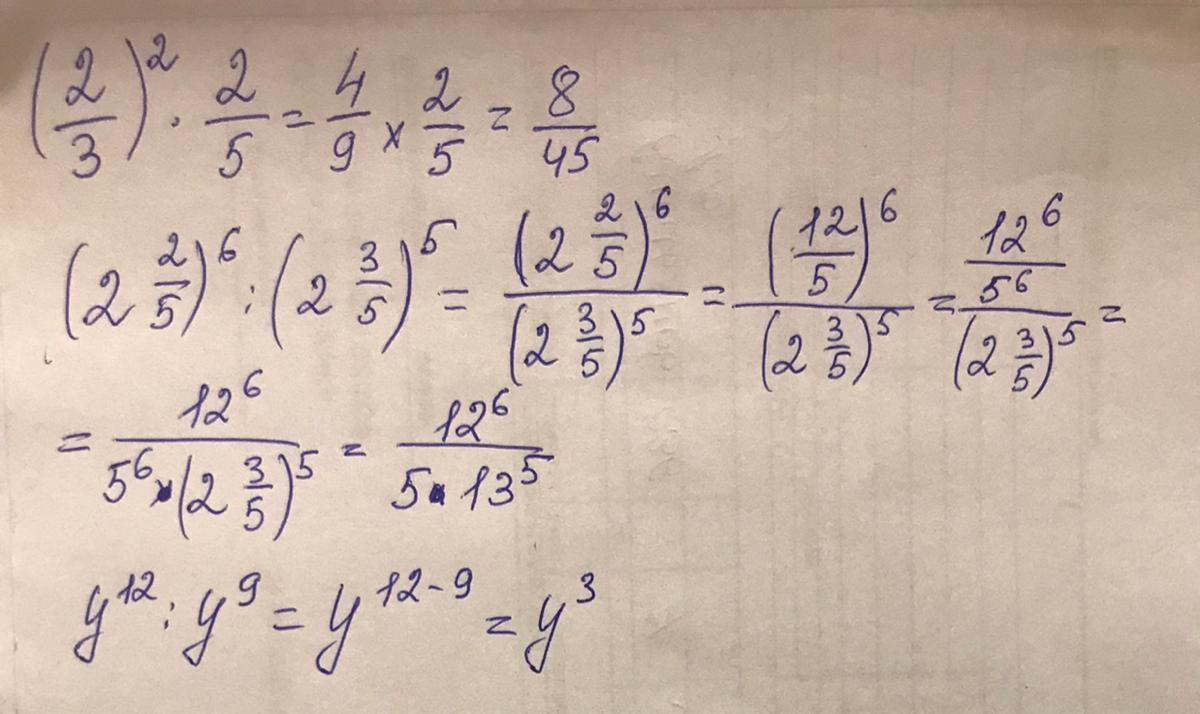 (2/3)² · 2/5 = 4/9 × 2/5 = 8/45
(2 2/5)⁶ : (2 3/5)⁵ = (2 2/5)⁶/(2 3/5)⁵ = (12/5)⁶/(2 3/5)⁵ = 12⁶/5⁶/(2 3/5)⁵ =
= 12⁶/5⁶·(2 3/5)⁵ = 12⁶/5·13⁵
y¹² : y⁹ = y¹²⁻⁹ = y³